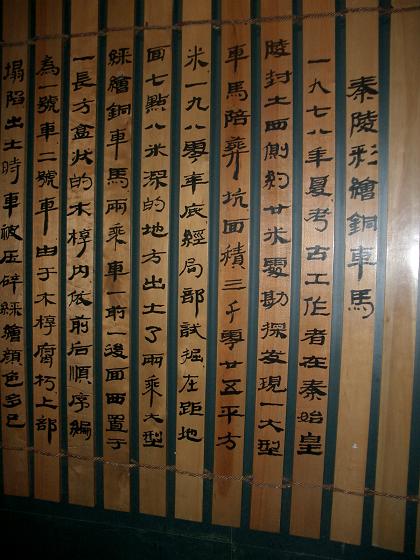 秦陵彩繪銅車馬
一九七八年夏考古工作者在秦始皇
陵封土西側約廿米處勘探发現一大型
車馬陪葬坑面積三千零廿五平方
米一九八零年底經局部試掘在距地
面七點八米深的地方出土了兩乘大型
綵繪銅車馬兩乘車一前一後面西置于
一長方盒状的木椁内依前后順序編
為一號車二號車由于木椁腐朽上部
塌陷出土時車被压碎綵繪顏色多已